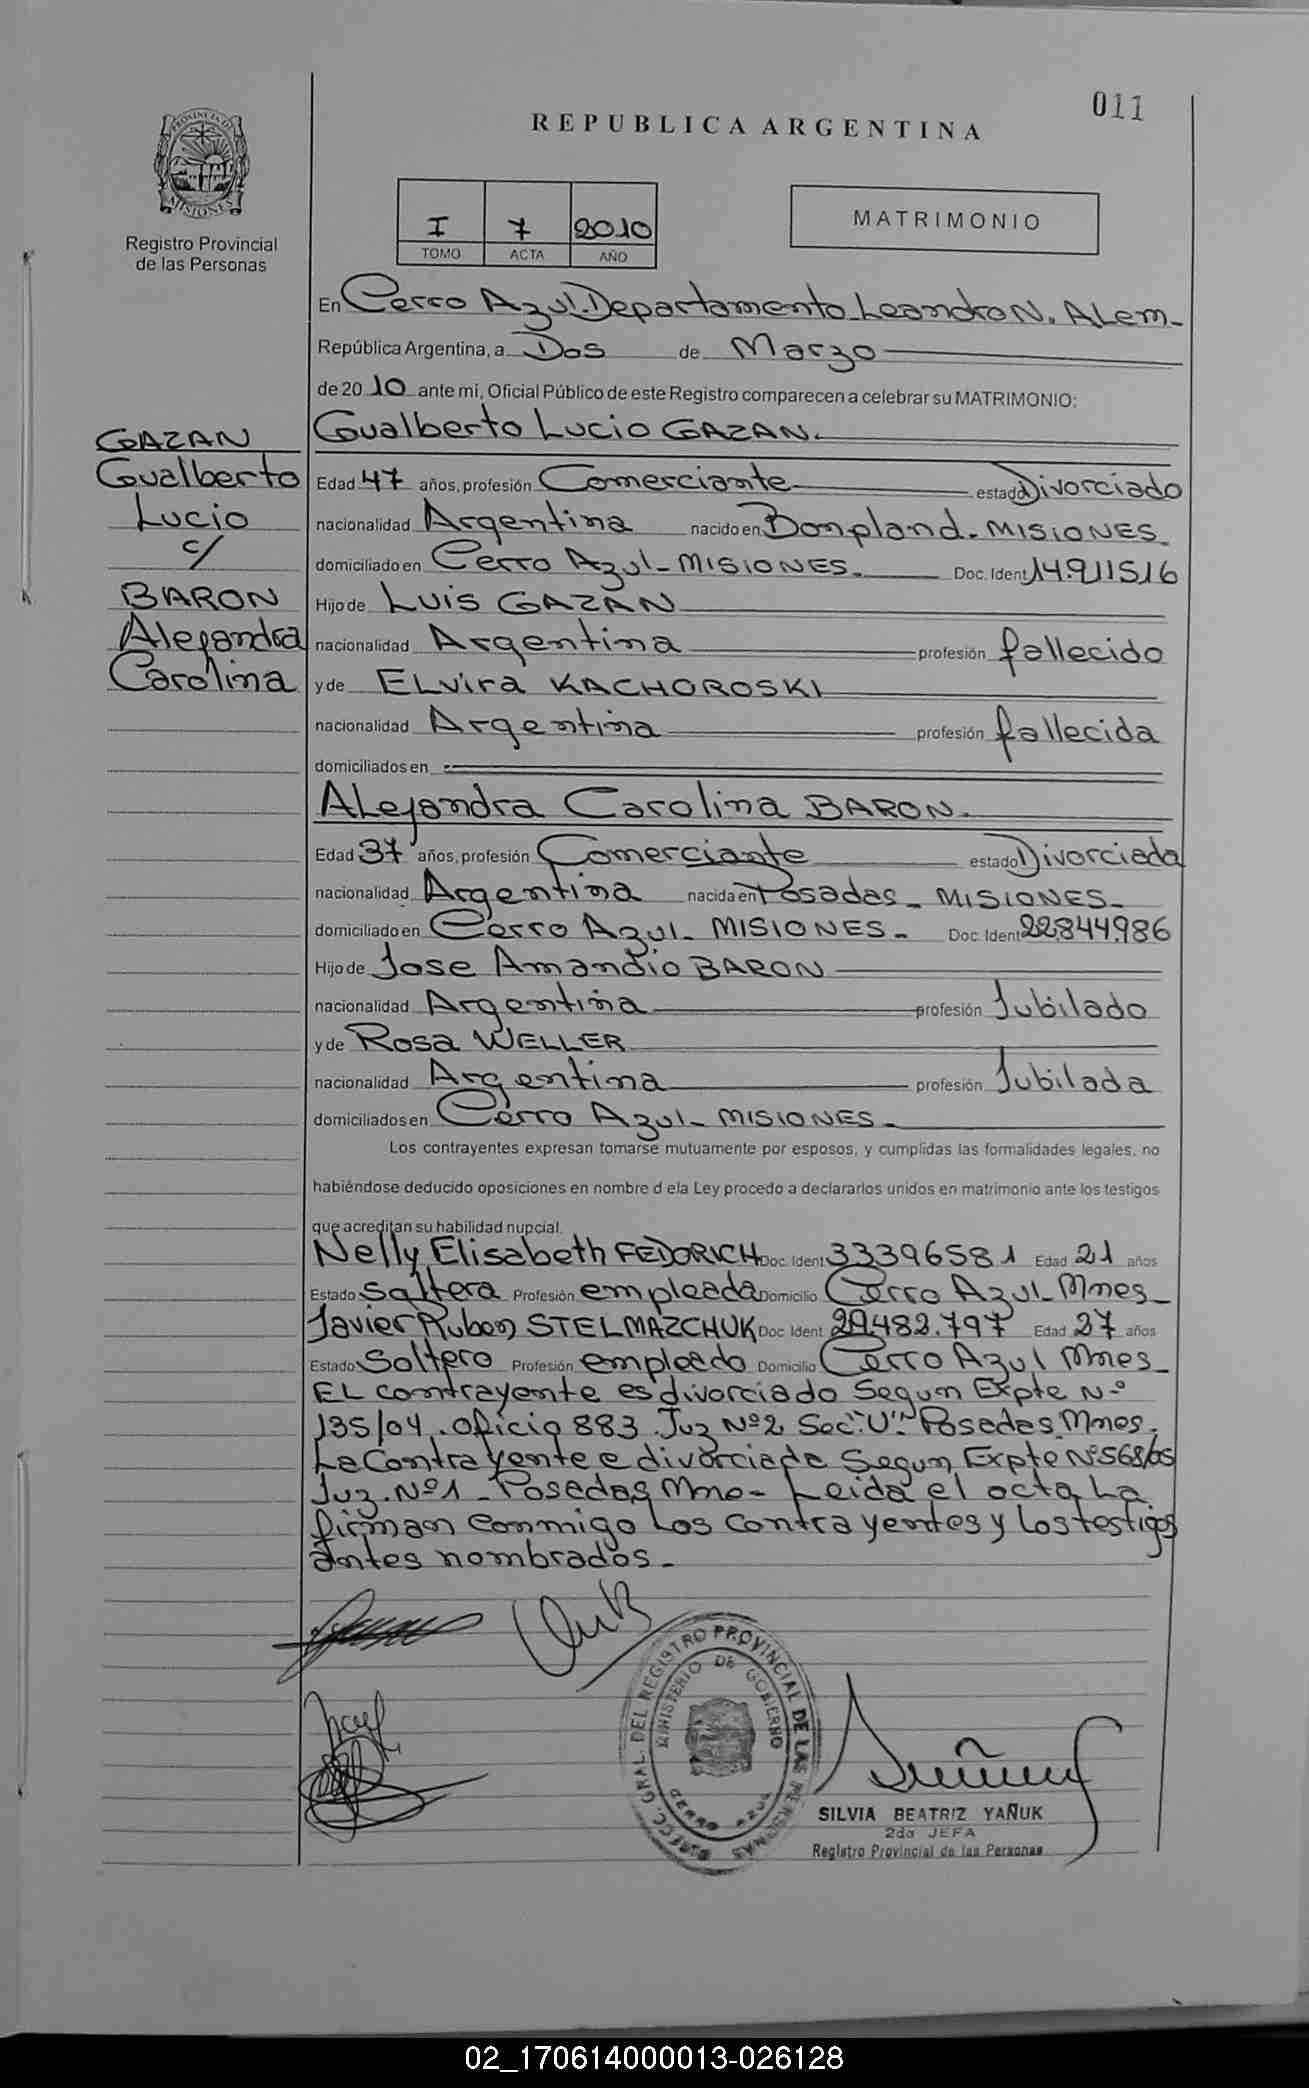 011
REPUBLICA ARGENTINA
PROVINCIA DE MISIONES
Registro Provincial
de las Personas
I 7 2010
TOMO ACTA AÑO
MATRIMONIO
En Cerro Azul. Departamento Leandro N. Alem-
República Argentina, a Dos de Marzo
de 2010 ante mi, Oficial Público de este Registro comparecen a celebrar su MATRIMONIO:
GAZAN
Gualberto
Lucio
c/
BARON
Alejandra
Carolina
Gualberto Lucio GAZAN.
Edad 47 años, profesión Comerciante estado Divorciado
nacionalidad Argentina nacido en Bonpland. MISIONES.
domiciliado en Cerro Azul - MISIONES. Doc. Ident 14.911516
Hijo de Luis GAZAN
nacionalidad Argentina profesión fallecido
y de ELvira KACHOROSKI
nacionalidad Argentina profesión fallecida
domiciliados en
ALejandra Carolina BARON.
Edad 37 años, profesión Comerciante estado Divorciada
nacionalidad Argentina nacida en Posadas - MISIONES-
domiciliado en Cerro Azul - MISIONES - Doc. Ident 22.844.986
Hijo de Jose Amandio BARON
nacionalidad Argentina profesión Jubilado
y de Rosa WELLER
nacionalidad Argentina profesión Jubilada
domiciliados en Cerro Azul - MISIONES-
Los contrayentes expresan tomarse mutuamente por esposos, y cumplidas las formalidades legales, no
habiéndose deducido oposiciones en nombre d ela Ley procedo a declararlos unidos en matrimonio ante los testigos
que acreditan su habilidad nupcial.
Nelly Elisabeth FEDORICH Doc. Ident 33396581 Edad 21 años
Estado Soltera Profesión empleada Domicilio Cerro Azul - Mnes-
Javier Ruben STELMAZCHUK Doc. Ident 29.482.797 Edad 27 años
Estado Soltero Profesión empleado Domicilio Cerro Azul Mnes-
EL contrayente es divorciado Segun Expte N.º
135/04. Oficio 883. Juz Nº2 Sec: "U" Posadas Mnes.
La Contrayente e divorciada Segun Expte Nº568/05
Juz. Nº1 - Posadas Mne- Leida el acta La
firman conmigo Los contrayentes y los testigos
antes nombrados.-
DIRECC. GRAL. DEL REGISTRO PROVINCIAL DE LAS PERSONAS
MINISTERIO DE GOBIERNO
SILVIA BEATRIZ YAÑUK
2da JEFA
Registro Provincial de las Personas
02_170614000013-026128